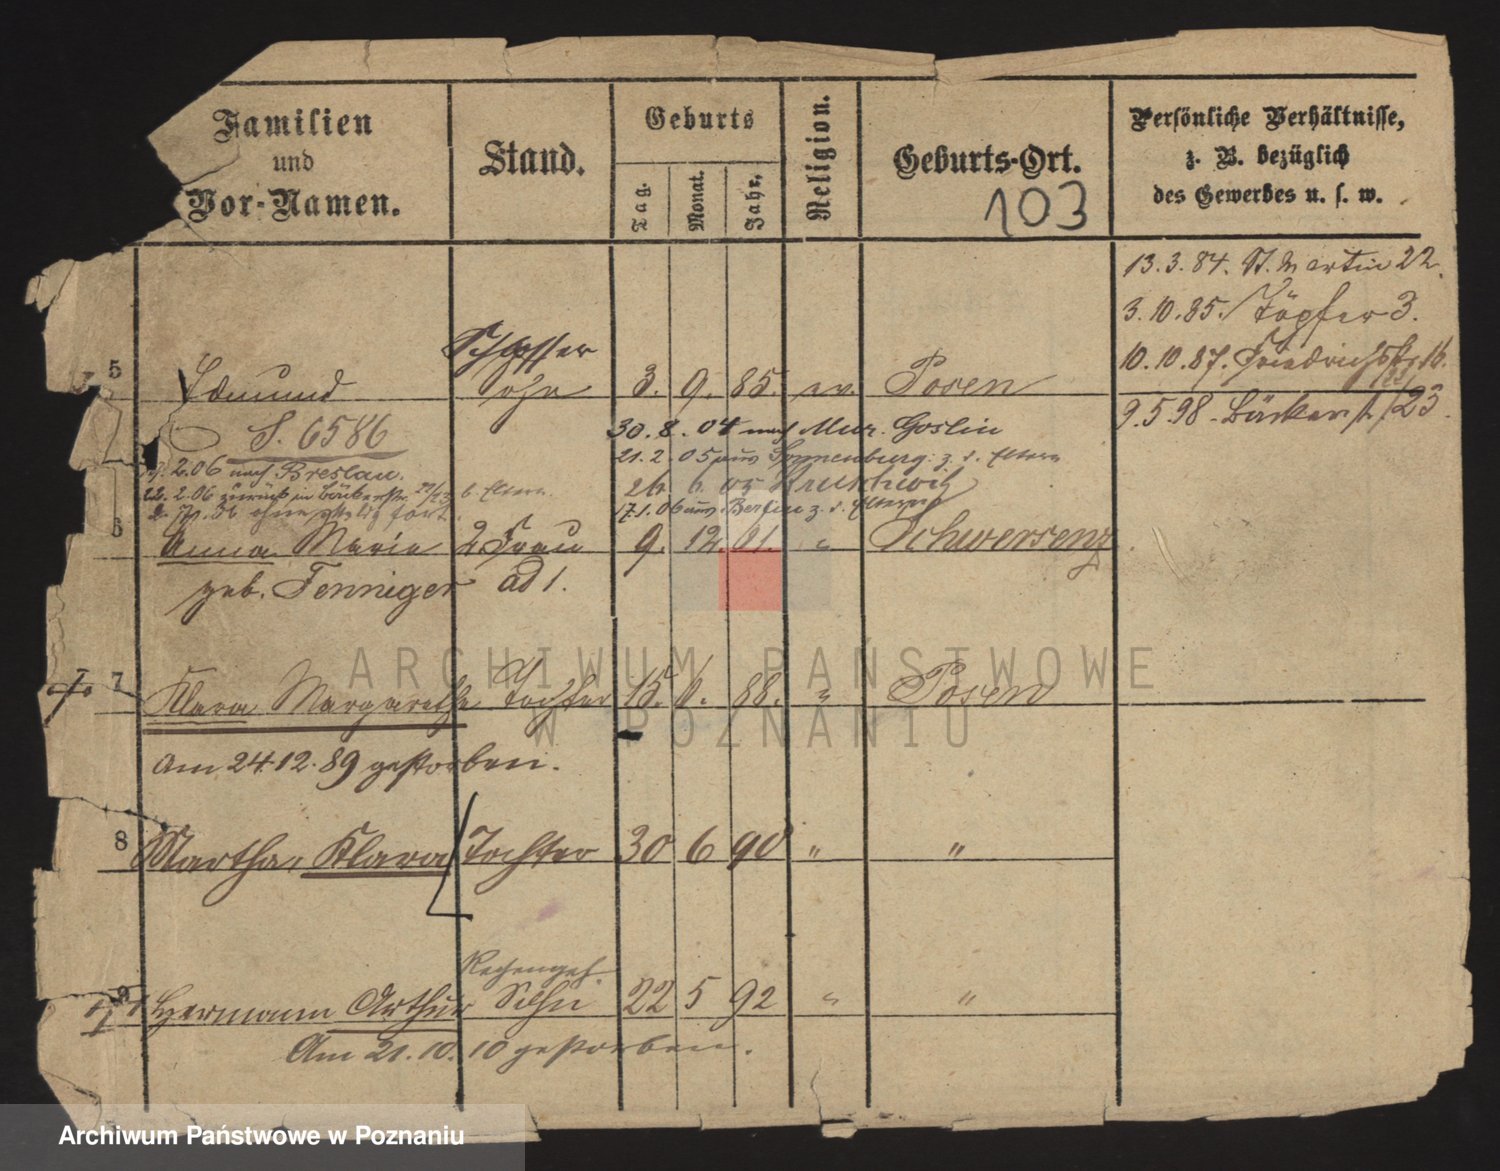 Familien
und
Vor-Namen.
Stand.
Geburts
Tag.
Monat.
Jahr.
Religion.
Geburts-Ort.
103
Persönliche Verhältnisse,
z. B. bezüglich
des Gewerbes u. s. w.
13.3.84. St. Martin 22.
3.10.85. Töpfer 3.
10.10.87. Friedrichstr. 16.
9.5.98. Bäckerstr. 22/23.
5
Edmund
Schlosser
Sohn
3. 9. 85. ev. Posen
S. 6586
30. 8. 04 nach Mur. Goslin
21. 2. 05 aus Sonnenburg z. d. Eltern
2.06 nach Breslau.
22. 2.06 zurück in Bäckerstr. 22/23 b. Eltern.
26. 6. 05 Kruschwitz
17.1.06 aus Berlin z. d. Eltern
fort.
6
Anna Marie
2. Frau
9. 12. 61. " Schwersenz.
geb. Fenniger
ad 1.
7
Klara Margarethe
Tochter
15. 6. 88. " Posen
Am 24.12.89 gestorben.
8
Martha, Klara
Tochter
30 6 90 " "
9
Hermann Arthur
Sohn
22 5 92 " "
Am 21.10.10 gestorben.
ARCHIWUM PAŃSTWOWE
W POZNANIU
Archiwum Państwowe w Poznaniu